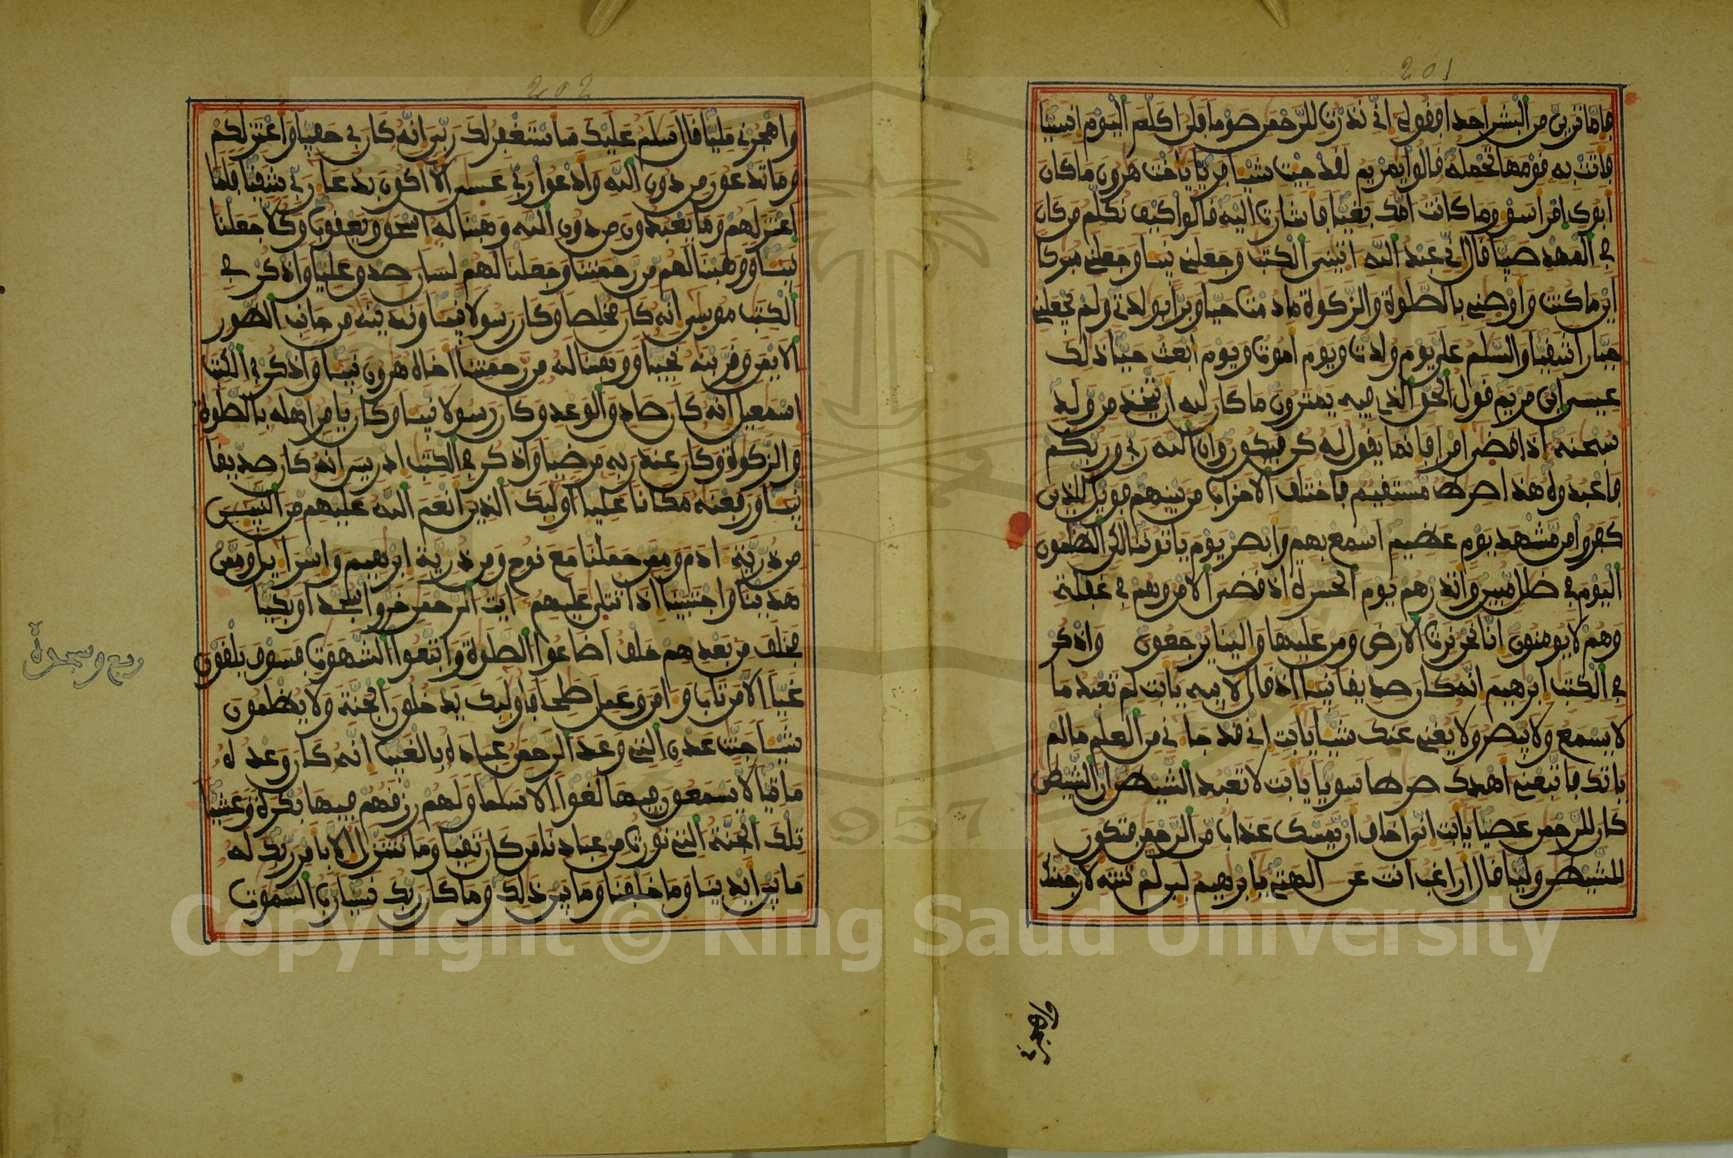 201
فاما ترين من البشر احدا فقولي اني نذرت للرحمن صوما فلن اكلم اليوم انسيا
فاتت به قومها تحمله قالوا يمريم لقد جيت شيا فريا ياخت هرون ما كان
ابوك امرا سوء وما كانت امك بغيا فاشارت اليه قالوا كيف نكلم من كان
في المهد صبيا قال اني عبد الله اتيني الكتب وجعلني نبيا وجعلني مبركا
اين ما كنت واوصني بالصلوة والزكوة ما دمت حيا وبرا بولدتي ولم يجعلني
جبارا شقيا والسلم علي يوم ولدت ويوم اموت ويوم ابعث حيا ذلك
عيسى ابن مريم قول الحق الذي فيه يمترون ما كان لله ان يتخذ من ولد
سبحنه اذا قضى امرا فانما يقول له كن فيكون وان الله ربي وربكم
فاعبدوه هذا صرط مستقيم فاختلف الاحزاب من بينهم فويل للذين
كفروا من مشهد يوم عظيم اسمع بهم وابصر يوم ياتوننا لكن الظلمون
اليوم في ضلل مبين وانذرهم يوم الحسرة اذ قضي الامر وهم في غفلة
وهم لا يومنون انا نحن نرث الارض ومن عليها والينا يرجعون واذكر
في الكتب ابرهيم انه كان صديقا نبيا اذ قال لابيه يابت لم تعبد ما
لا يسمع ولا يبصر ولا يغني عنك شيا يابت اني قد جاني من العلم ما لم
ياتك فاتبعني اهدك صرطا سويا يابت لا تعبد الشيطن ان الشيطن
كان للرحمن عصيا يابت اني اخاف ان يمسك عذاب من الرحمن فتكون
للشيطن وليا قال اراغب انت عن الهتي يابرهيم لين لم تنته لارجمنك
واهجرني
202
واهجرني مليا قال سلم عليك ساستغفر لك ربي انه كان بي حفيا واعتزلكم
وما تدعون من دون الله وادعوا ربي عسى الا اكون بدعاء ربي شقيا فلما
اعتزلهم وما يعبدون من دون الله وهبنا له اسحق ويعقوب وكلا جعلنا
نبيا ووهبنا لهم من رحمتنا وجعلنا لهم لسان صدق عليا واذكر في
الكتب موسى انه كان مخلصا وكان رسولا نبيا وندينه من جانب الطور
الايمن وقربنه نجيا ووهبنا له من رحمتنا اخاه هرون نبيا واذكر في الكتب
اسمعيل انه كان صادق الوعد وكان رسولا نبيا وكان يامر اهله بالصلوة
والزكوة وكان عند ربه مرضيا واذكر في الكتب ادريس انه كان صديقا
نبيا ورفعنه مكانا عليا اوليك الذين انعم الله عليهم من النبيين
من ذرية ادم وممن حملنا مع نوح ومن ذرية ابرهيم واسرايل وممن
هدينا واجتبينا اذا تتلى عليهم ايت الرحمن خروا سجدا وبكيا
فخلف من بعدهم خلف اضاعوا الصلوة واتبعوا الشهوت فسوف يلقون
غيا الا من تاب وامن وعمل صلحا فاوليك يدخلون الجنة ولا يظلمون
شيا جنت عدن التي وعد الرحمن عباده بالغيب انه كان وعده
ماتيا لا يسمعون فيها لغوا الا سلما ولهم رزقهم فيها بكرة وعشيا
تلك الجنة التي نورث من عبادنا من كان تقيا وما نتنزل الا بامر ربك له
ما بين ايدينا وما خلفنا وما بين ذلك وما كان ربك نسيا رب السموت
1957
Copyright © King Saud University